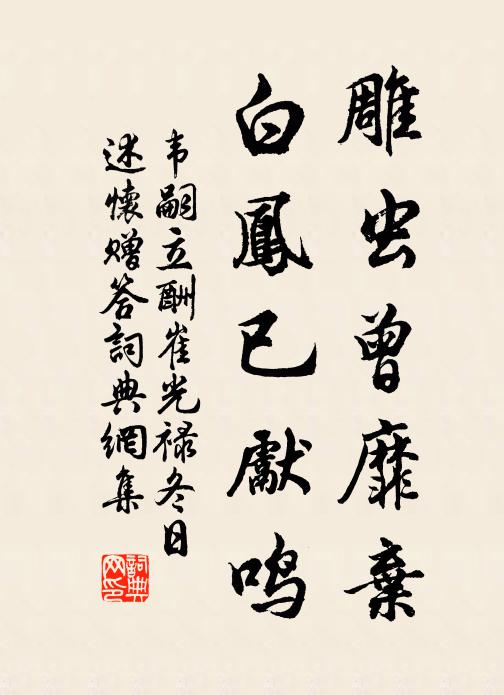 雕虫曾靡棄
白鳳已獻鸣
韦嗣立酬崔光禄冬日
述懷赠答詞典網集
詞典
网印